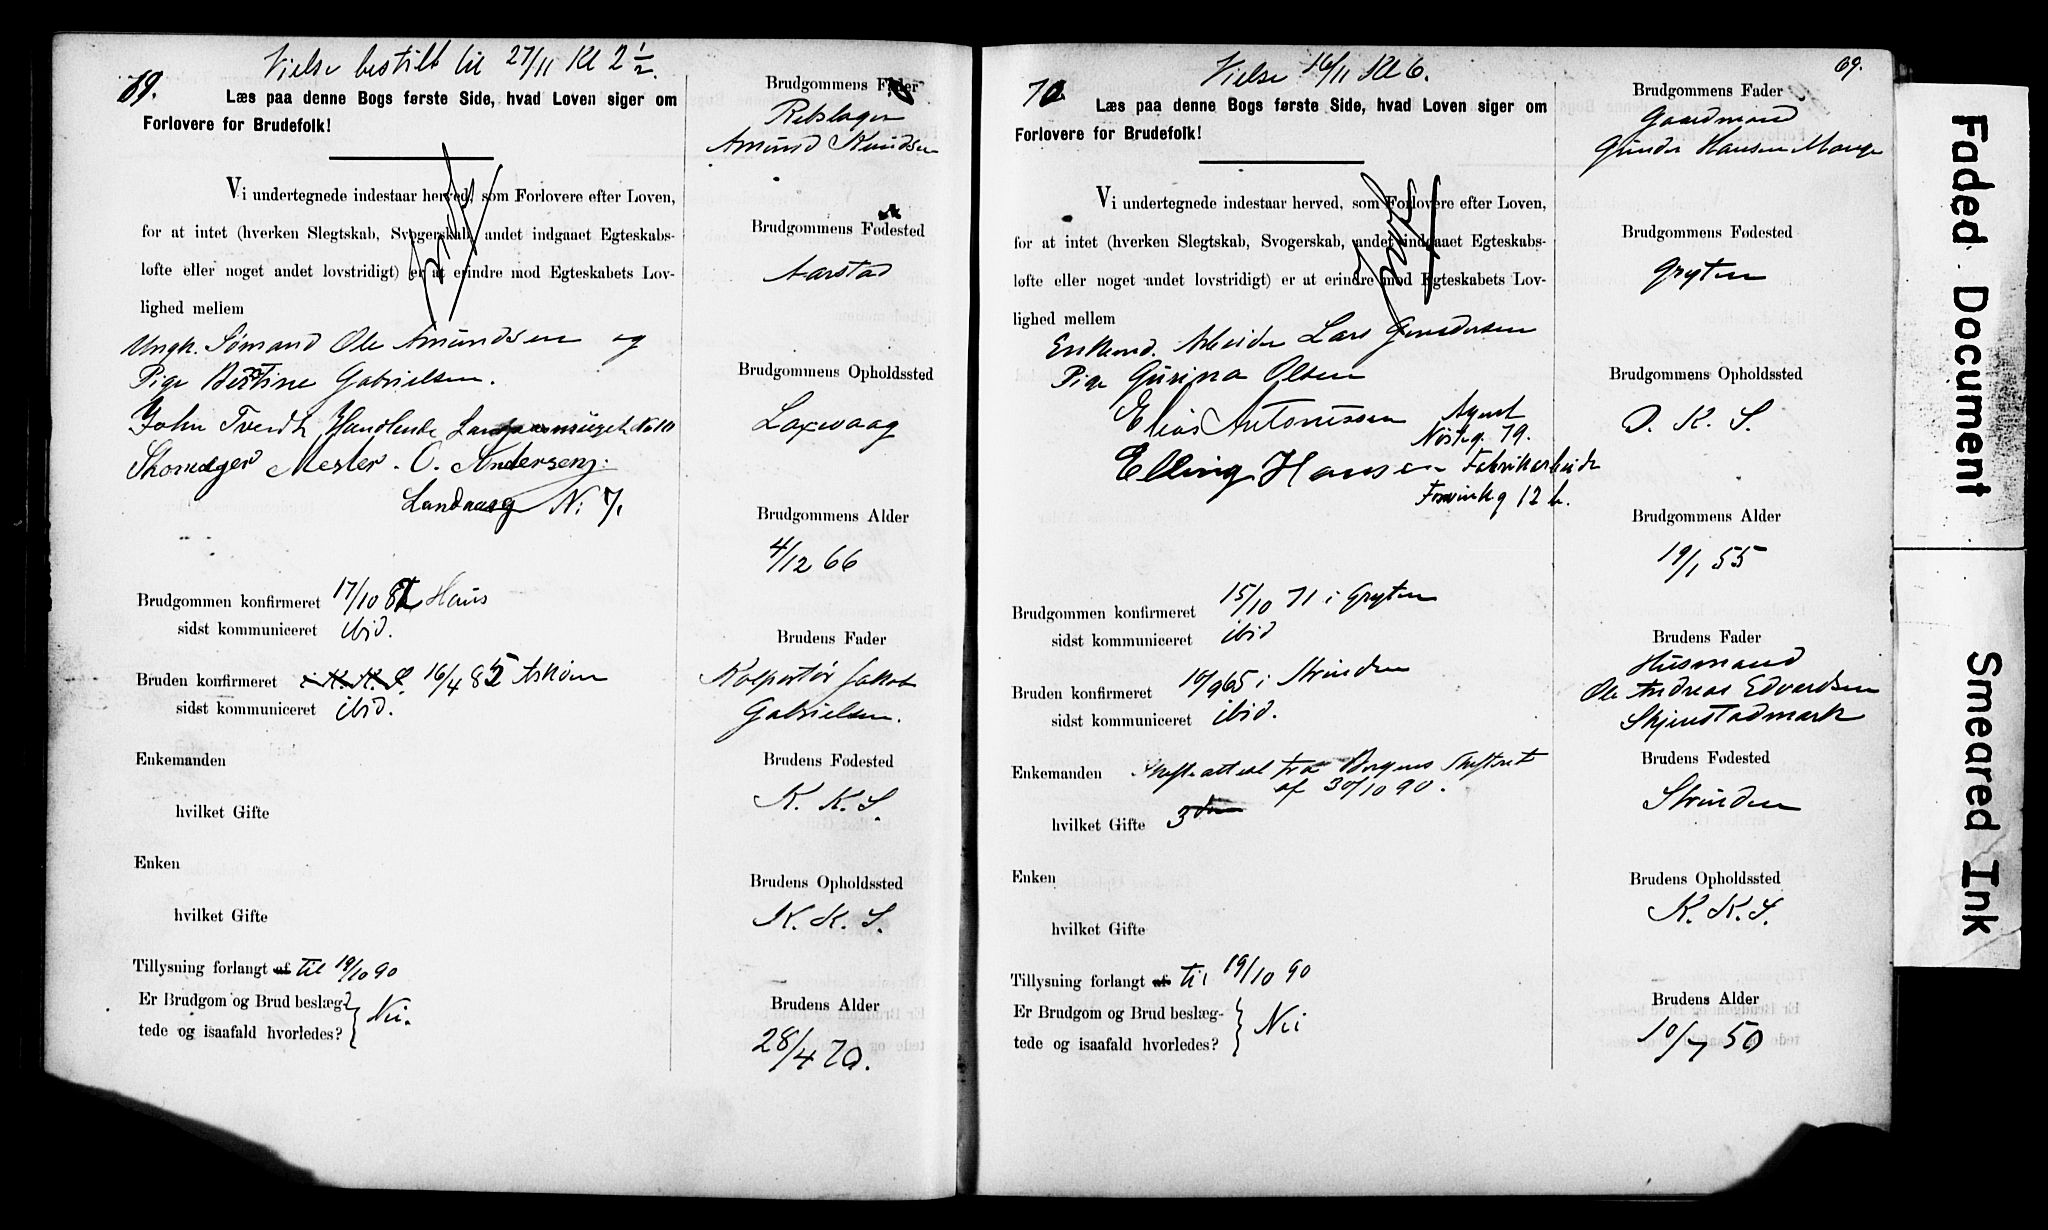 Vielse bestilt til 27/11 Kl 2 1/2.
69.
Læs paa denne Bogs første Side, hvad Loven siger om
Forlovere for Brudefolk!
Vi undertegnede indestaar herved, som Forlovere efter Loven,
for at intet (hverken Slegtskab, Svogerskab, andet indgaaet Egteskabs-
løfte eller noget andet lovstridigt) er at erindre mod Egteskabets Lov-
lighed mellem
Ungk. Sømand Ole Amundsen og
Pige Bertine Gabrielsen.
John Tvedt Handlende
Skomager Mester. O. Andersen
Landaasg N: 7.
Brudgommen konfirmeret 17/10 81 Haus
sidst kommuniceret ibid.
Bruden konfirmeret i K. K. S. 16/4 85 Askøen
sidst kommuniceret ibid.
Enkemanden
hvilket Gifte
Enken
hvilket Gifte
Tillysning forlangt af til 19/10 90
Er Brudgom og Brud beslæg-
tede og isaafald hvorledes? } Nei.
Brudgommens Fader
Rebslager
Amund Knudsen
Brudgommens Fødested
Aarstad
Brudgommens Opholdssted
Laxevaag
Brudgommens Alder
4/12 66
Brudens Fader
Kolportør Jakob
Gabrielsen.
Brudens Fødested
K. K. S.
Brudens Opholdssted
K. K. S.
Brudens Alder
28/4 70.
Vielse 16/11 Kl 6.
69.
70
Læs paa denne Bogs første Side, hvad Loven siger om
Forlovere for Brudefolk!
Vi undertegnede indestaar herved, som Forlovere efter Loven,
for at intet (hverken Slegtskab, Svogerskab, andet indgaaet Egteskabs-
løfte eller noget andet lovstridigt) er at erindre mod Egteskabets Lov-
lighed mellem
Enkemd. Arbeider Lars Gundersen
Pige Gurina Olsen
Elias Antonissen Agent
Nøsteg. 79.
Elling Hansen Fabrikarbeider
12 b.
Brudgommen konfirmeret 15/10 71 i Gryten
sidst kommuniceret ibid
Bruden konfirmeret 10/9 65 i Strinden
sidst kommuniceret ibid.
Enkemanden Skifteattest fra Bergens Skifteret
af 30/10 90.
hvilket Gifte 3die
Enken
hvilket Gifte
Tillysning forlangt af til 19/10 90
Er Brudgom og Brud beslæg-
tede og isaafald hvorledes? } Nei
Brudgommens Fader
Gaardmand
Gunder Hansen
Brudgommens Fødested
Gryten
Brudgommens Opholdssted
D. K. S.
Brudgommens Alder
19/1 55
Brudens Fader
Husmand
Ole Andreas Edvardsen
Skjenstadmark
Brudens Fødested
Strinden
Brudens Opholdssted
K. K. S.
Brudens Alder
10/7 50
Faded Document
Smeared Ink